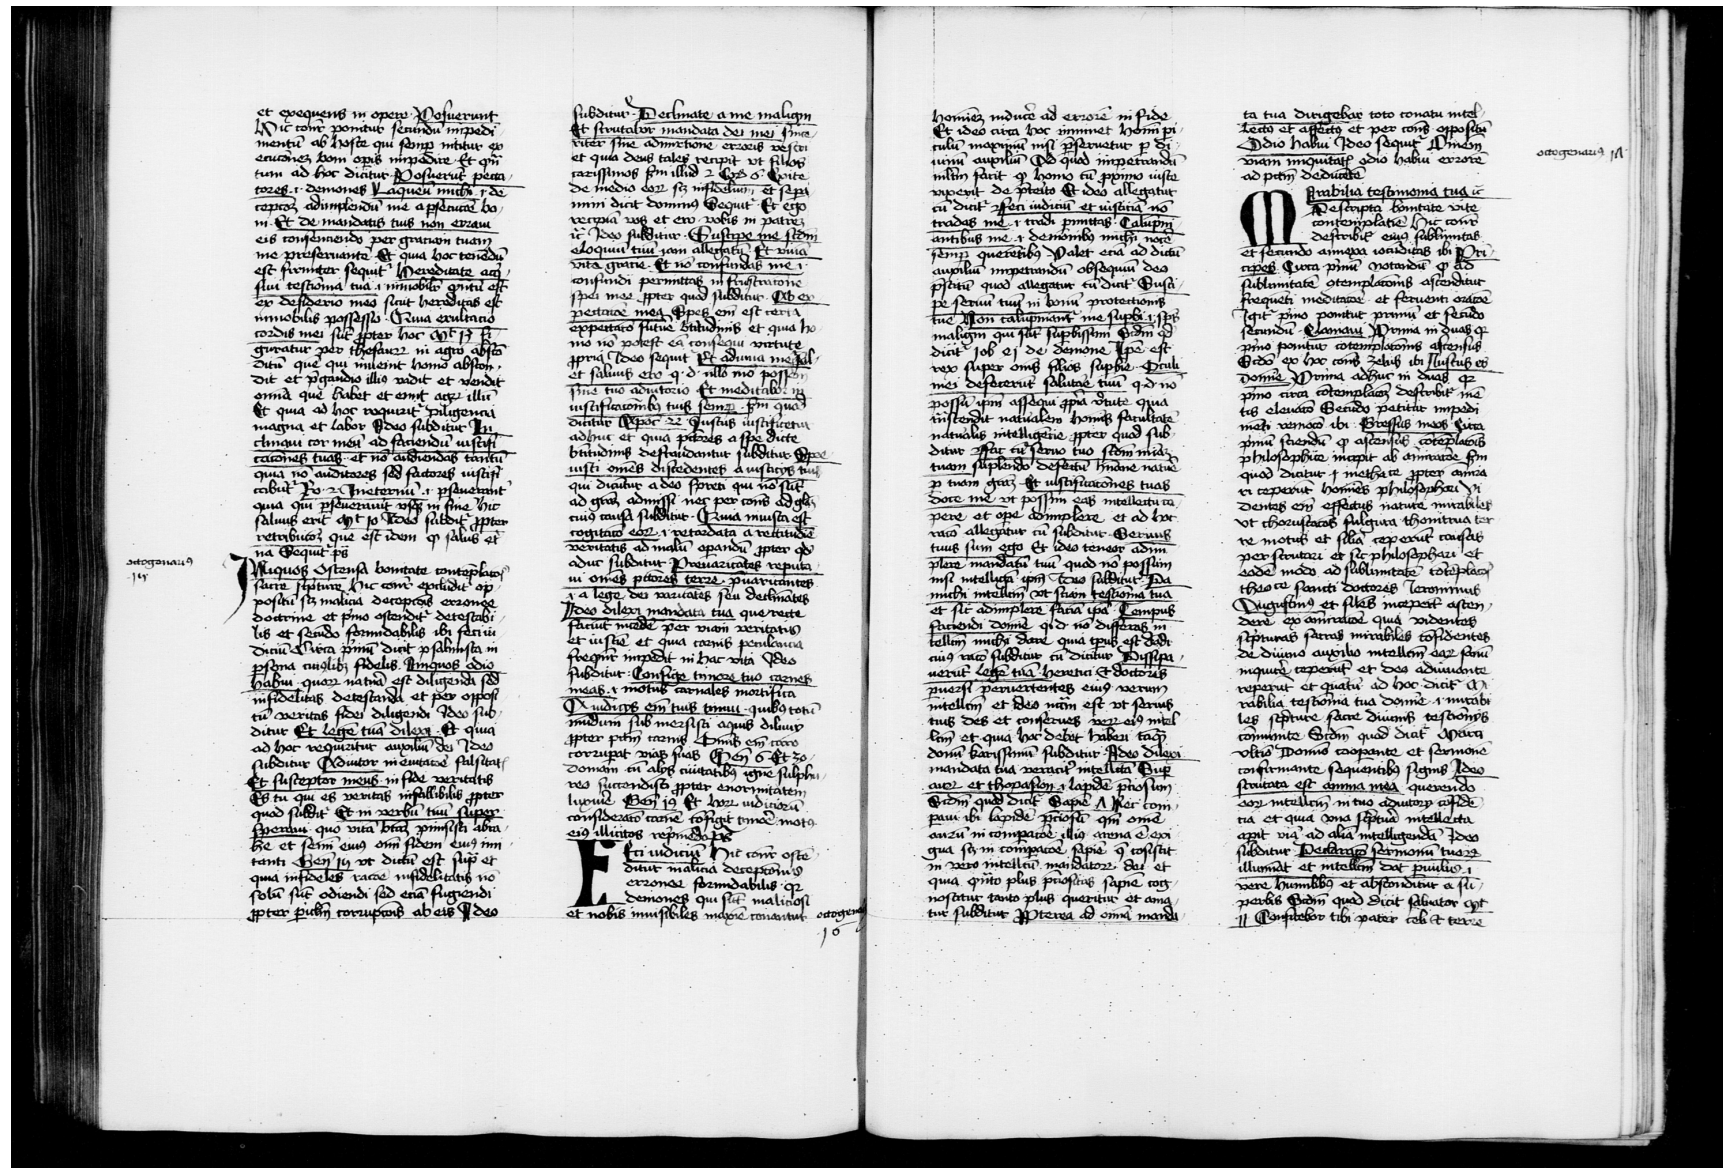 et exequens in opere Posuerunt
Hic cons̄r ponitur secundū impedi
mentū ab hoste qui semꝑ nititur ex
ecutōnez boni opis impedire Et qn̄
tum ad hoc dicitur Posuerūt pecca
tores .i. demones Laqueū michi .i. de
ni Et de mandatis tuis non erraui
eis consenciendo per graciam tuam
me preseruantē Et quia hoc tenēdū
est firmiter sequit᷑ Hereditate acq̄
siui testimōia tua .i. immobilr̄
ex desiderio meo sicut hereditas est
immobilis possessio Quia exultacio
cordis mei sūt ꝓpter hoc Mt 13
guratur per thesaurū in agro abscō
ditū que qui inuenit homo abscon
dit et p̄ gaudio illius vadit et vendit
omnia que habet et emit agrū illū
Et quia ad hoc requirit᷑ diligencia
magna et labor Ideo subditur In
clinaui cor meū ad faciendū iustifi
cacōnes tuas et nō audiendas tantū
quia nō auditores sed factores iustifi
cabūt᷑ Ro 2 In eternū .i. ꝑseueranter
quia qui ꝑseuerauit vsq̄ in finē hic
saluus erit Mt 10 Ideo subdit᷑ ꝓpter
retribucōez que est idem ꝙ salus et
na Sequit᷑ p̄s
octogenarius
15
Iniquos Ostensa bonitate contēplacōis
sacre scpture Hic cons̄r excludit᷑ op
positū scz malicia deceptōis erronee
doctrine et pͥmo ostendit᷑ detestabi
lis et secūdo formidabilis ibi Feci iu
diciū Circa pͥmū dicit psalmista in
ꝑsona cuiuslibz fidelis Iniquos odio
habui quoꝝ natura est diligenda sed
infidelitas detestanda et per opposi
tū veritas fidei diligendi Ideo sub
ditur Et legē tuā dilexi Et quia
ad hoc requiritur auxiliū dei Ideo
subditur Adiutor in euitacōe falsitatis
Et susceptor meus in fide veritatis
Es tu qui es veritas infallibilis ꝓpter
quod subdit᷑ Et in verbū tuū super
speraui quo vitā btāz ꝓmisisti abra
he et semī eius om̄ fidem eius imi
tanti Gen̄ 15 vt dictū est supͣ et
quia infideles racōe infidelitatis nō
solū sūt odiendi sed eciā fugiendi
ꝓpter ꝑiclm̄ corrupcōis ab eis Ideo
subditur Declinate a me maligni
Et scrutabor mandata dei mei since
riter sine admixtione erroris vestri
et quia deus tales recipit vt filios
carissimos scdm illud 2 Cor̄ 6 Exite
de medio eoꝝ scz infideliū et sepa
mini dicit dominus Sequit᷑ Et ego
recipiā vos et ero vobis in patrez
ꝛc̄ Ideo subditur Suscipe me scdm̄
eloquiū tuū iam allegatū Et viuā
vita gracie Et nō confundas me .i.
confundi permittas in frustracione
spei mee ꝓpter quod subditur Ab ex
pectacōe mea Spes em̄ est certa
expectacō future btitudinis et quia ho
mo nō potest eā consequi virtute
ꝓpria Ideo sequit᷑ Et adiuua me
et saluus ero q. d. alio mō possem
sine tuo adiutorio Et meditabor in
iustificacōnibꝫ tuis semꝑ scdm quod
dicitur Apoc 22 Iustus iustificetur
adhuc et quia pctōres a spe dicte
btitudinis defraudantur subditur Spre
uisti omēs discedentes a iusticijs tuis
qui dicūtur a deo spreti qui nō sūt
ad grāz admissi nec per cons̄ ad glāz
cuius causa subditur Quia iniusta est
cogitacō eoꝝ .i. retardata a rectitudīe
veritatis ad malū operandū ꝓpter qd̄
aduc subditur Preuaricates reputa
ui omēs pctores terre p̄uaricantes
.i. a lege dei veritates seu declinātes
Ideo dilexi mandata tua que recte
faciūt incedē per viam veritatis
et iusticie et quia carnis petulancia
freqn̄t᷑ impedit in hac vita Ideo
subditur Confige timore tuo carnes
meas .i. motus carnales mortifica
A iudicijs em̄ tuis timui quibus totū
mūdum submersisti aquis diluuij
ꝓpter pctm̄ carnis Omnis em̄ caro
corruperat vias suas Gen̄ 6 Et zo
domam cū alijs ciuitatibꝫ igne sulphu
reo succendisti ꝓpter enormitatem
luxurie Gen̄ 19 Et hoꝝ iudicioꝝ
consideracō carnē cōfigit timōe motus
eius illicitos rep̄mēdo p̄s
Feci iudiciū Hic cons̄r oste
ditur malicia deceptōnis
erronee formidabilis qꝛ
demones qui sūt maliciosi
et nobis inuisibiles maxīe conantur
octogenarius
16
hominez inducē ad errorē in fide
Et ideo circa hoc iminet homini pi
culum maximū nisi p̄seruetur p̄ di
uinū auxiliū Ad quod impetrandū
multm̄ facit ꝙ homo cū ꝓximo iuste
vixerit de p̄terito Et ideo allegatur
cū dicit᷑ Feci iudiciū et iusticiā nō
tradas me .i. tradi ꝑmittas Calūpni
antibus me .i. demonibꝫ michi nocē
semꝑ querētibꝫ Valet eciā ad dictū
auxiliū impetrandū obsequiū deo
pͣstitū quod allegatur cū dicit᷑ Susci
pe seruū tuū in bonū protectionis
tue Non calupniant᷑ me supbi .i. spūs
maligni qui sūt supbissimi Scdm qd̄
dicit᷑ Job 41 de demone Ipse est
rex super om̄s filios supbie Oculi
mei defecerūt in salutare tuū q.d. nō
possū ipm̄ assequi ꝓpria v̓tute quia
trāscendit naturalem homīs facultatē
naturalis intelligēcie ꝓpter quod sub
ditur Fac cū seruo tuo scdm m̄iāz
tuam supplendo defectū hūane nature
p̄ tuam grāz Et iustificacōnes tuas
doce me vt possim eas intellectu ca
pere et opͤ adimplere et ad hoc
racō allegatur cū subditur Seruus
tuus sum ego Et ideo teneor adim
plere mandatū tuū quod nō possum
nisi intelligā ipm̄ Ideo subditur Da
michi intellm̄ vt sciam testiōnia tua
et sic adimplere faciā ipa Tempus
faciendi domīe q.d. nō differas in
tellm̄ michi dare quia tp̄us est dādi
cuius racō subditur cū dicitur Dissipa
uerūt legē tuā heretici et doctores
ꝑuersi peruertentes eius verum
intellm̄ et ideo nccm̄ est vt seruis
tuis des et conserues veꝝ eius intel
lcm̄ et quia hoc debet haberi taqꝫ
donū karissimū subditur Ideo dilexi
mandata tua veracit᷑ intellecta Sup̄
auꝝ et thopasion .i. lapidē p̄ciosum
Scdm quod dicit᷑ Sapīe 7 Nec com
paui ibi lapidē p̄ciosū qm̄ omē
auꝝ in compacōe illius arena ē exi
gua scz in compacōe sapīe q̄ cōsistit
in vero intellcū mandatoꝝ dei et
quia qn̄to plus p̄ciositas sapīe cog
noscitur tanto plus queritur et ama
tur subditur Ppterea ad om̄ia manda
ta tua dirigebar toto conatu intel
lectus et affectus et per cons̄ oppositū
Odio habui Ideo sequit᷑ Omem
viam iniquitat᷑ odio habui errorē
ad pctm̄ deducētē
octogenarius 17
Mirabilia testimonia tua ꝛc̄
Descripta bonitate vite
contemplatiē Hic cons̄r
describit᷑ eius sublimitas
et secundo annexa iocūditas ibi Pri
cipes Circa pͥmū Notandū ꝙ ad
sublimitatē cōtemplacōnis ascendit᷑
frequēti meditacōe et feruenti oracōe
Igit᷑ pͥmo ponitur primū et secūdo
secundū Clamaui Prima in duas qꝛ
pͥmo ponitur cōtemplacōnis ascensus
Scdo ex hoc cons̄ zelus ibi Iustus es
Domīe Prima adhuc in duas qꝛ
pͥmo circa cōtemplacōez describit᷑ mē
tis eleuacō Secūdo petitur impedi
meti remocō ibi Gressus meos Circa
pͥmū sciendū ꝙ ascensus cōtēplacōis
philosophice incepit ab amiracōe scdm
quod dicitur 1 metha᷑e ꝓpter amira
ri ceperūt homīes philosophari Vi
dentes em̄ effectus nature mirabiles
vt choruscacōes fulgura thonitrua ter
re motus et silia ceperūt causas
per scrutari et sic philosophari et
eodē modo ad sublimitatē cōtēplacōis
theoᷓce sancti doctores Ieronimus
Augustinus et siles incepert᷑ ascen
dere ex amiracōe quia videntes
scripturas sacras mirabiles cōfidentes
de diuino auxilio intellm̄ eaꝝ sanū
inquirē ceperūt et deo adiuuante
repererūt et quatū ad hoc dicit᷑ Mi
rabilia testiōnia tua domīe .i. mirabi
les scpture sacre diuinis testimōijs
cōmunite Scdm quod dicit᷑ Marci
vltīo Domīo cooperante et sermonē
confirmante sequentibꝫ signis Ideo
scrutata est anima mea querendo
eoꝝ intellcm̄ in tuo adiutorio cōfidē
cia et quia vna scptura intellecta
aperit viā ad aliā intelligendā Ideo
subditur Declaracō sermonū tuoꝝ
illumīat et intellcm̄ dat ꝑuulis .i.
vere humilibꝫ et absconditur a su
perbis Scdm quod dicit saluator Mt
11 Confitebor tibi pater celi et terre